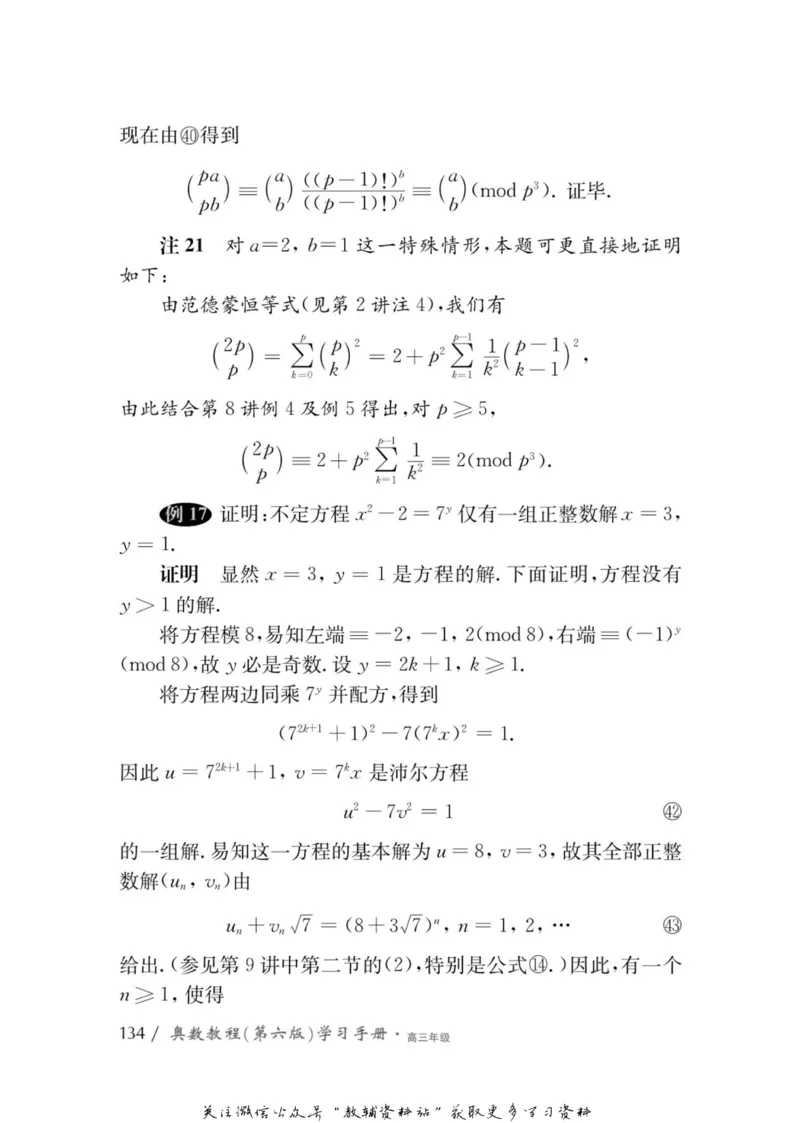 现在由㊵得到
$\binom{pa}{pb} \equiv \binom{a}{b} \frac{((p-1)!)^b}{((p-1)!)^b} \equiv \binom{a}{b} \pmod{p^3}$. 证毕.
注 21 对 $a=2$, $b=1$ 这一特殊情形,本题可更直接地证明
如下:
由范德蒙恒等式(见第 2 讲注 4),我们有
$\binom{2p}{p} = \sum_{k=0}^{p} \binom{p}{k}^2 = 2+p^2 \sum_{k=1}^{p-1} \frac{1}{k^2} \binom{p-1}{k-1}^2$,
由此结合第 8 讲例 4 及例 5 得出,对 $p \geqslant 5$,
$\binom{2p}{p} \equiv 2+p^2 \sum_{k=1}^{p-1} \frac{1}{k^2} \equiv 2 \pmod{p^3}$.
例 17 证明:不定方程 $x^2-2=7^y$ 仅有一组正整数解 $x=3$,
$y=1$.
证明 显然 $x=3$, $y=1$ 是方程的解. 下面证明,方程没有
$y>1$ 的解.
将方程模 8,易知左端 $\equiv -2, -1, 2 \pmod 8$,右端 $\equiv (-1)^y$
$\pmod 8$,故 $y$ 必是奇数. 设 $y=2k+1$, $k \geqslant 1$.
将方程两边同乘 $7^y$ 并配方,得到
$(7^{2k+1}+1)^2-7(7^k x)^2=1$.
因此 $u=7^{2k+1}+1$, $v=7^k x$ 是沛尔方程
$u^2-7v^2=1$ ㊷
的一组解. 易知这一方程的基本解为 $u=8$, $v=3$, 故其全部正整
数解$(u_n, v_n)$由
$u_n+v_n\sqrt{7}=(8+3\sqrt{7})^n$, $n=1, 2, \cdots$ ㊸
给出. (参见第 9 讲中第二节的(2),特别是公式⑭.)因此,有一个
$n \geqslant 1$, 使得
134 / 奥数教程(第六版)学习手册 · 高三年级
关注微信公众号“教辅资料站”获取更多学习资料